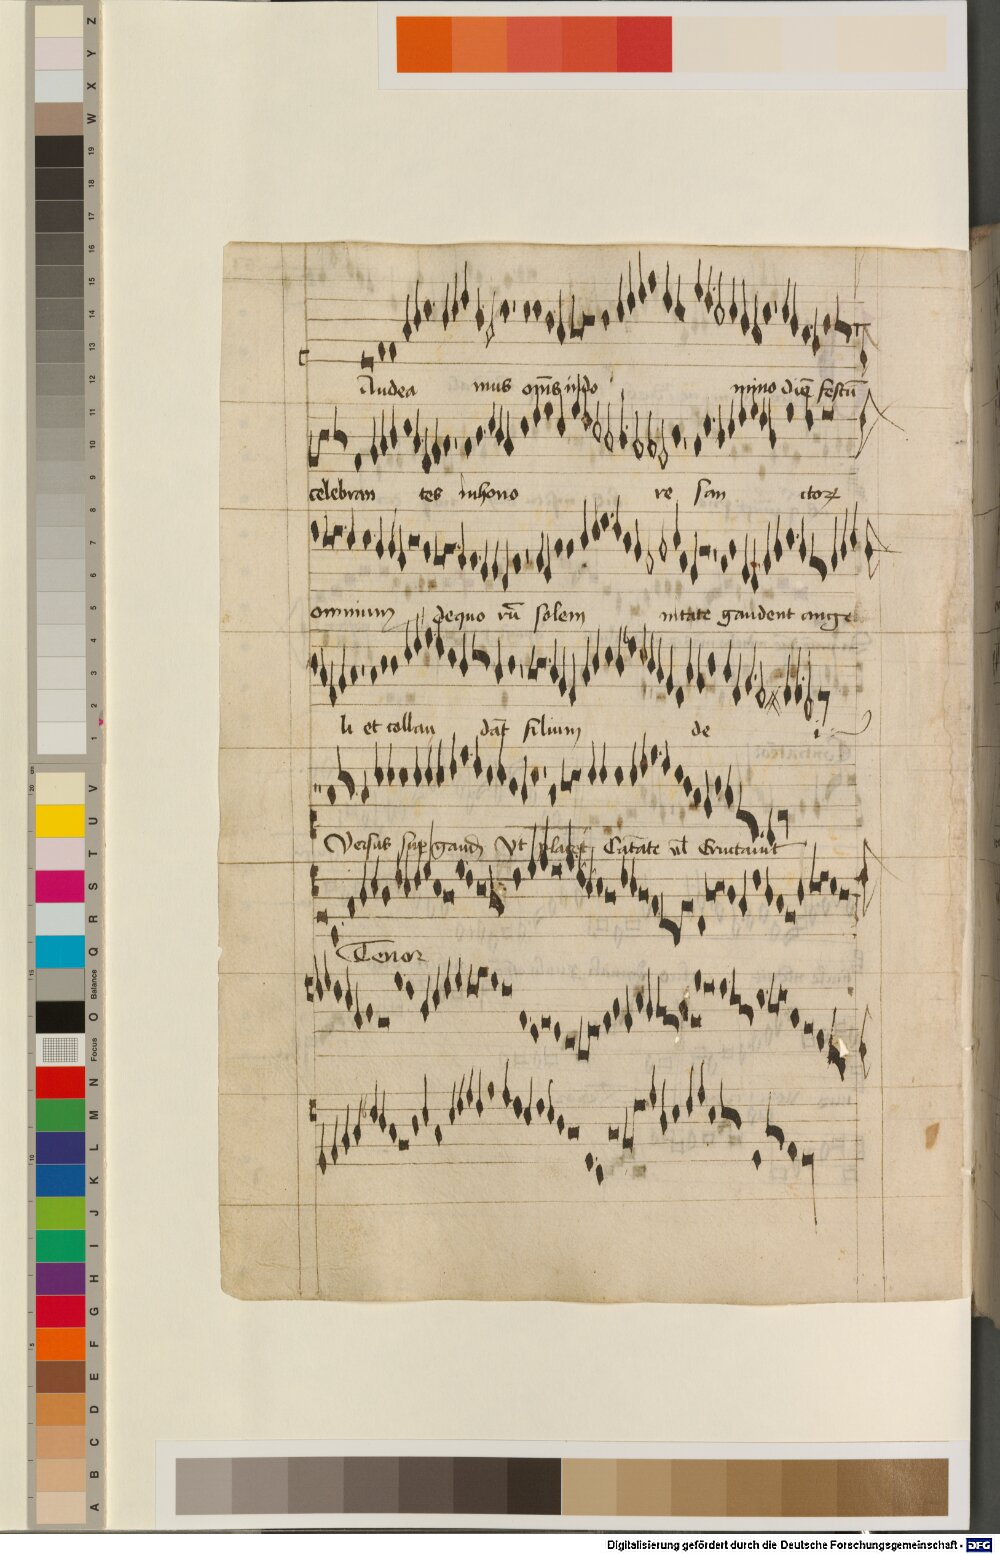 Audea mus om̄s in do mino diē festū
celebran tes in hono re san ctoꝝ
omnium de quo rū solem nitate gaudent ange
li et collau dāt filium de i
Versus sup gaud Vt placet Cātate vl Eructauit
Tenor
Z
Y
X
W
19
18
17
16
15
14
13
12
11
10
9
8
7
6
5
4
3
2
1
V
U
T
S
R
Q
Balance
O
Focus
N
M
L
K
J
I
H
G
F
E
D
C
B
A
Digitalisierung gefördert durch die Deutsche Forschungsgemeinschaft - DFG